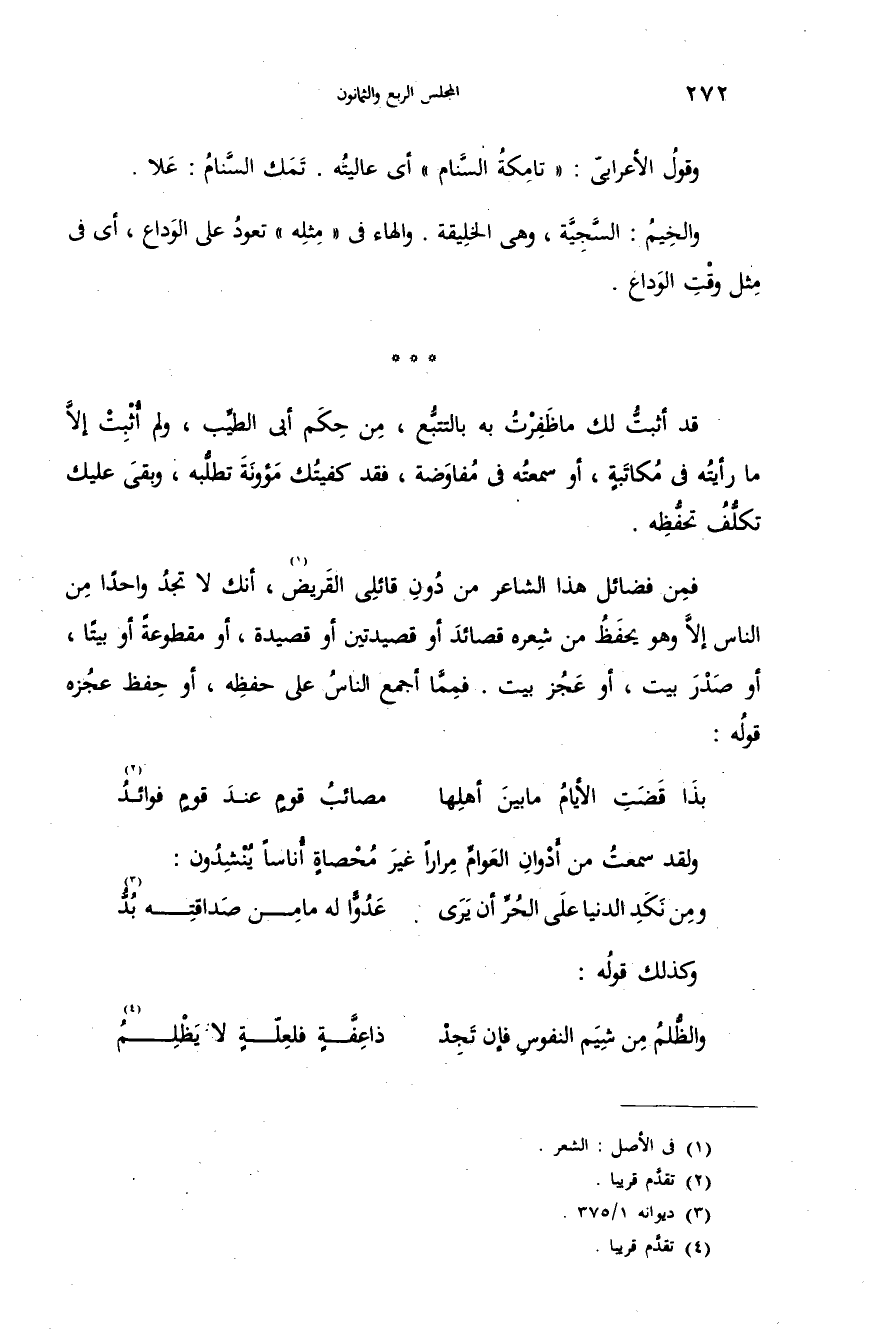 ٢٧٢ المجلس الربع والثمانون
وقولُ الأعرابىّ : « تامِكةُ السَّنام » أى عاليتُه . تَمَك السَّنامُ : عَلا .
والخِيمُ : السَّجِيَّة ، وهى الخلِيقة . والهاء فى « مِثلِه » تعودُ على الوَداع ، أى فى
مِثل وقْتِ الوَداع .
* * *
قد أثبتُّ لك ماظَفِرْتُ به بالتتبُّع ، مِن حِكَم أبى الطيِّب ، ولم أُثْبِتْ إلاَّ
ما رأيتُه فى مُكاتَبةٍ ، أو سمعتُه فى مُفاوَضة ، فقد كفيتُك مَؤونَةَ تطلُّبه ، وبقىَ عليك
تكلُّفُ تحفُّظِه .
فمِن فضائل هذا الشاعر من دُونِ قائلِى القَريض(١) ، أنك لا تجدُ واحدًا مِن
الناس إلاَّ وهو يحفَظُ من شِعره قصائدَ أو قصيدتين أو قصيدة ، أو مقطوعةً أو بيتًا ،
أو صَدْرَ بيت ، أو عَجُز بيت . فمِمَّا أجمع الناسُ على حفظِه ، أو حِفظ عجُزه
قولُه :
بذَا قَضَتِ الأيامُ مابينَ أهلِها مصائبُ قومٍ عندَ قومٍ فوائدُ(٢)
ولقد سمعتُ من أَدْوانِ العَوامِّ مِراراً غيرَ مُحْصاةٍ أُناساً يُنْشِدُون :
ومِن نَكَدِ الدنيا علَى الحُرِّ أن يَرَى عَدُوًّا له مامِـن صَداقتِـه بُدُّ(٣)
وكذلك قولُه :
والظُّلمُ مِن شِيَم النفوسِ فإن تَجِدْ ذاعِفَّـةٍ فلعِلّـةٍ لا يَظْلِـمُ(٤)
(١) فى الأصل : الشعر .
(٢) تقدَّم قريبا .
(٣) ديوانه ٣٧٥/١ .
(٤) تقدَّم قريبا .